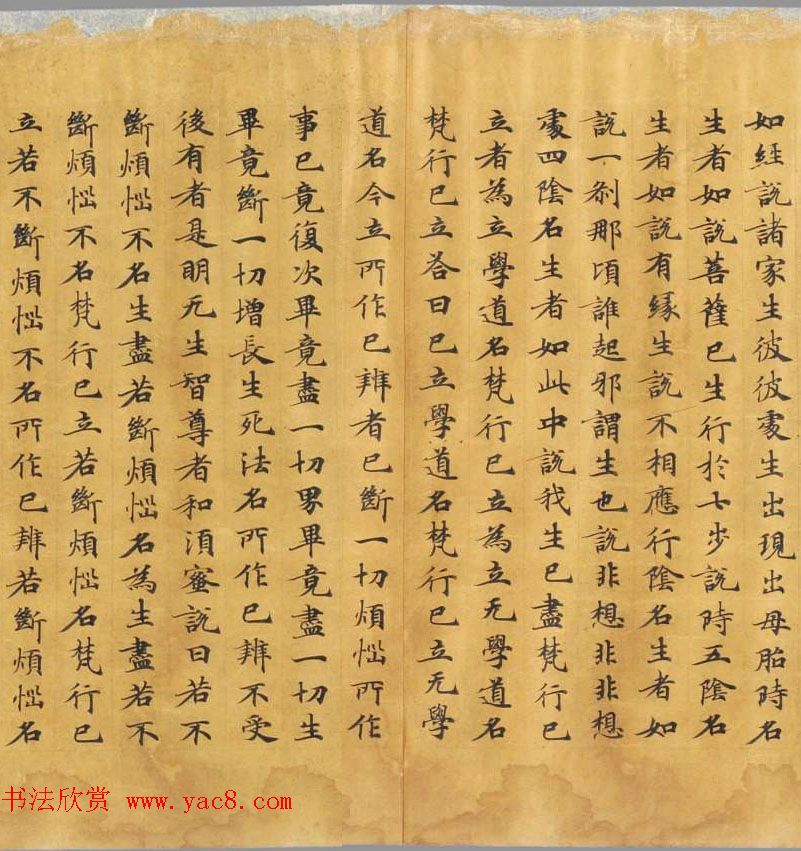 如經說諸家生彼彼處生出現出母胎時名
生者如說菩薩已生行於七步說時五陰名
生者如說有緣生說不相應行陰名生者如
說一剎那頃誰起邪謂生也說非想非非想
處四陰名生者如此中說我生已盡梵行已
立者為立學道名梵行已立為立无學道名
梵行已立答曰已立學道名梵行已立无學
道名今立所作已辨者已斷一切煩惱所作
事已竟復次畢竟盡一切界畢竟盡一切生
畢竟斷一切增長生死法名所作已辨不受
後有者是明无生智尊者和須蜜說曰若不
斷煩惱不名生盡若斷煩惱名為生盡若不
斷煩惱不名梵行已立若斷煩惱名梵行已
立若不斷煩惱不名所作已辨若斷煩惱名
书法欣赏 www.yac8.com